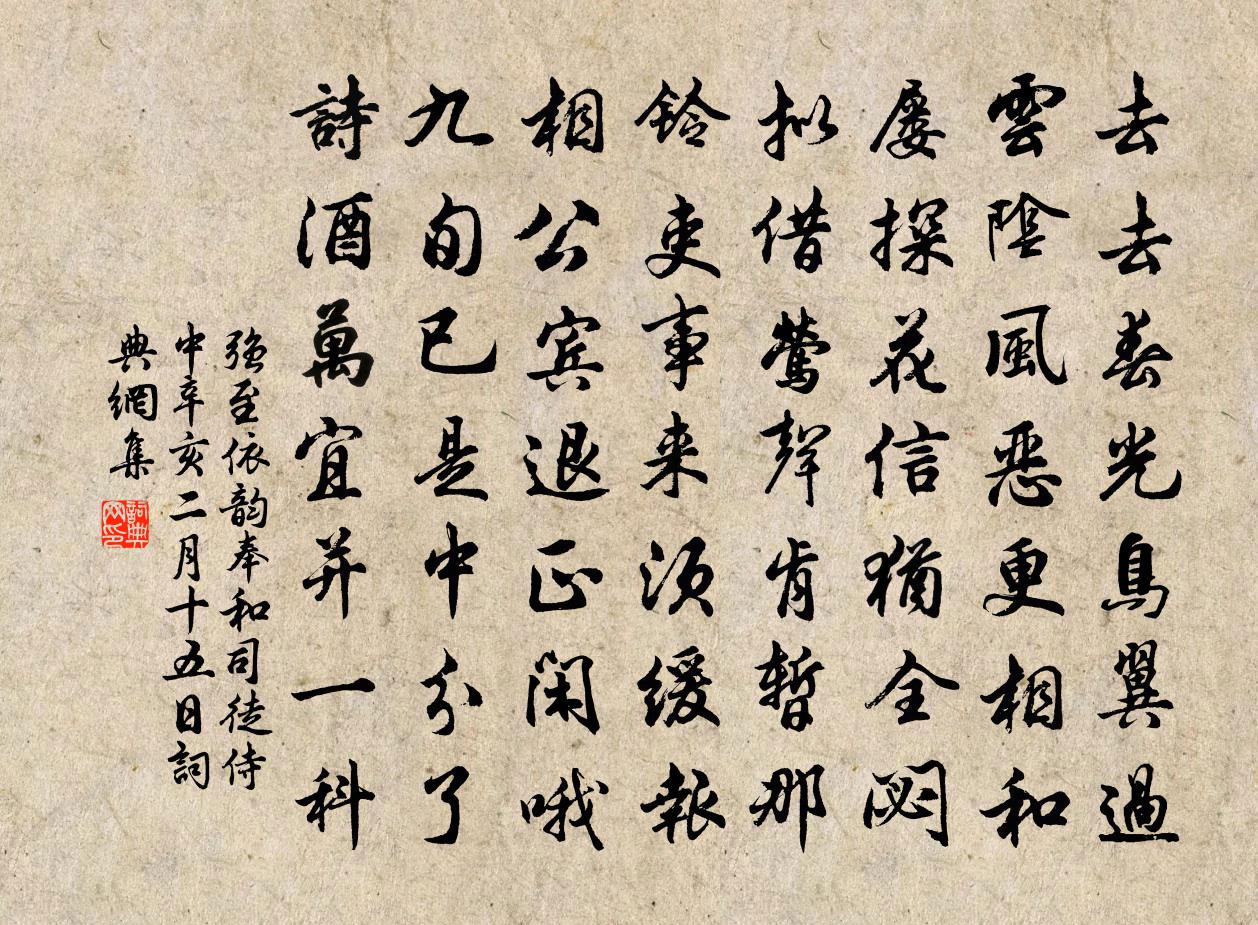 去去春光鳥翼過
雲陰風惡更相和
屡探花信猶全閟
拟借鶯聲肯暫那
鈴吏事来須緩報
相公宾退正閑哦
九旬已是中分了
詩酒萬宜并一科
强至依韵奉和司徒侍
中辛亥二月十五日詞
典網集
詞典网印